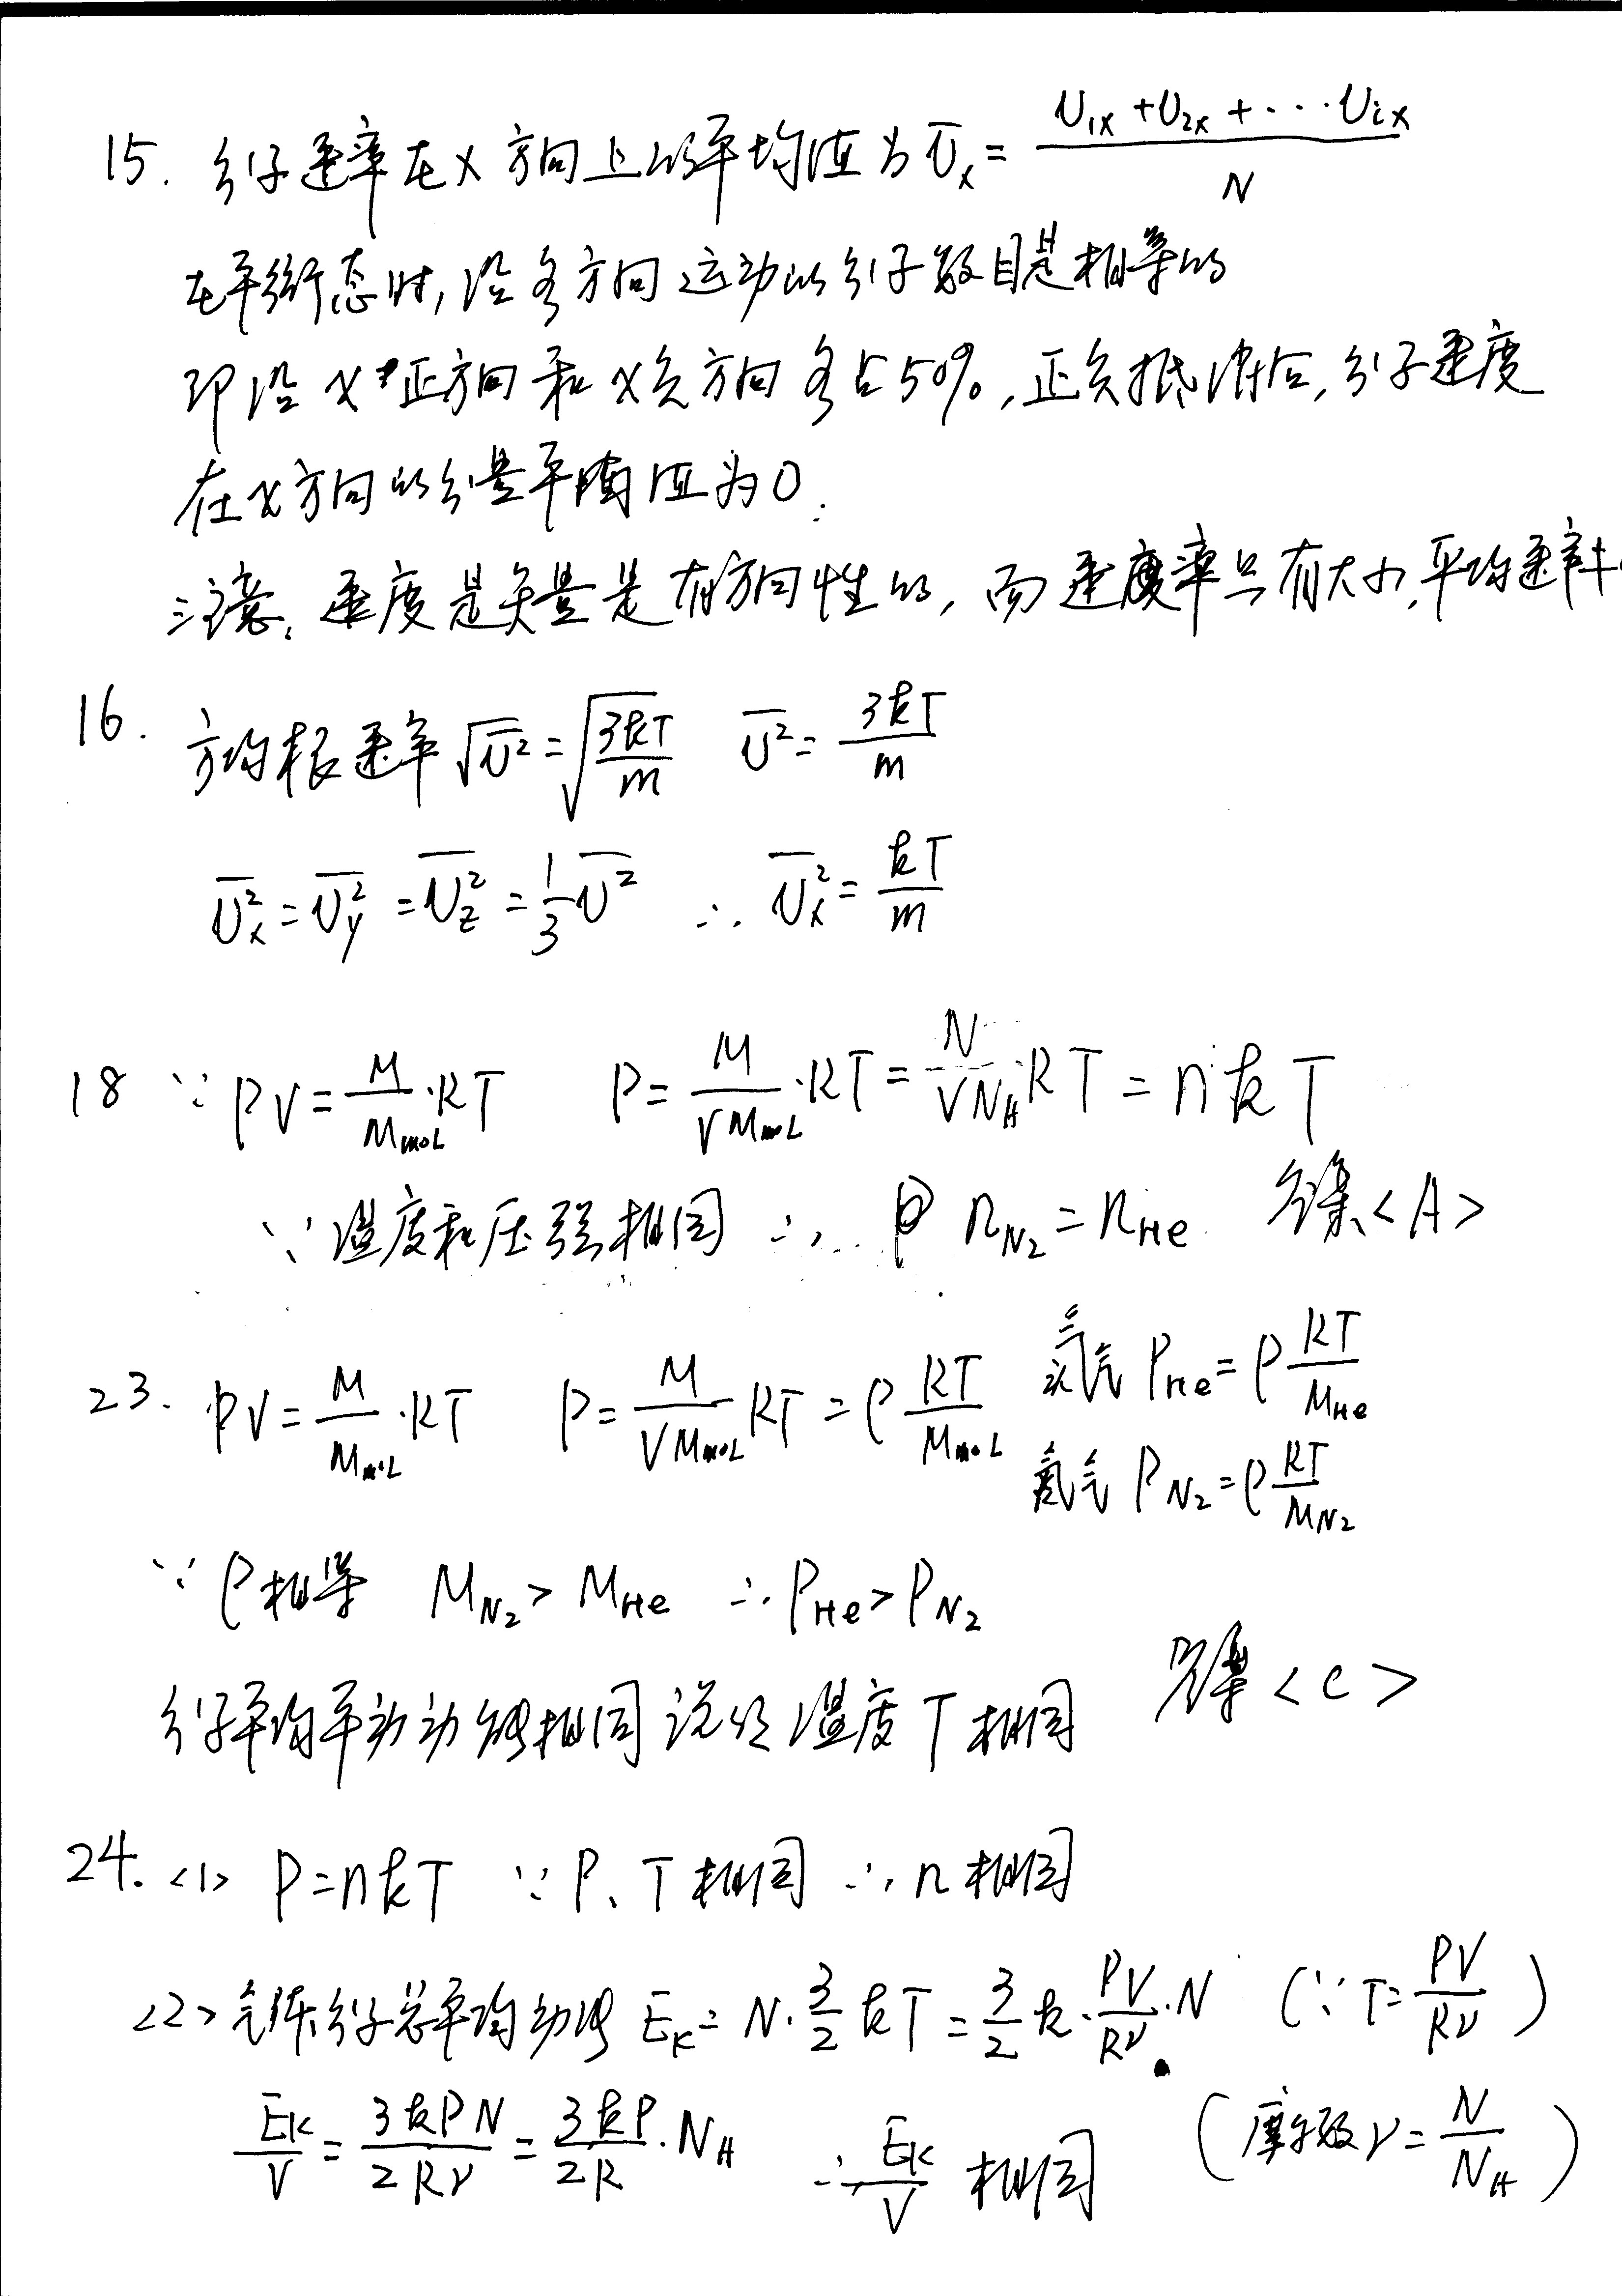 15. 分子速率在X方向上的平均值为 v̄ₓ = (v₁ₓ+v₂ₓ+···vᵢₓ)/N
在平衡态时,沿各方向运动的分子数目是相等的
即沿x正方向和x负方向各占50%,正负抵消后,分子速度
在x方向的分量平均值为0.
注意:速度是矢量是有方向性的,而速率只有大小,平均速率
16. 方均根速率 √(v̄²) = √(3kT/m)  v̄² = 3kT/m
v̄ₓ² = v̄ᵧ² = v̄_z² = 1/3 v̄² ∴ v̄ₓ² = kT/m
18 ∵ PV = M/M_mol·RT  P = M/(VM_mol)·RT = N/(VN_A) RT = nkT
∵ 温度和压强相同 ∴ n_N₂ = n_He 答案<A>
23. PV = M/M_mol·RT  P = M/(VM_mol) RT = ρ RT/M_mol 氦气 P_He = ρ RT/M_He
氮气 P_N₂ = ρ RT/M_N₂
∵ ρ相等 M_N₂ > M_He ∴ P_He > P_N₂
分子平均平动动能相同说明温度T相同 答案<C>
24. <1> P=nkT ∵ P、T相同 ∴ n相同
<2> 气体分子总平均动能 E_K = N·3/2 kT = 3/2 k·PV/(Rν)·N (∵ T = PV/(Rν))
E_K/V = 3kPN/(2Rν) = 3kP/(2R)·N_A ∴ E_K/V 相同 (摩尔数ν = N/N_A)